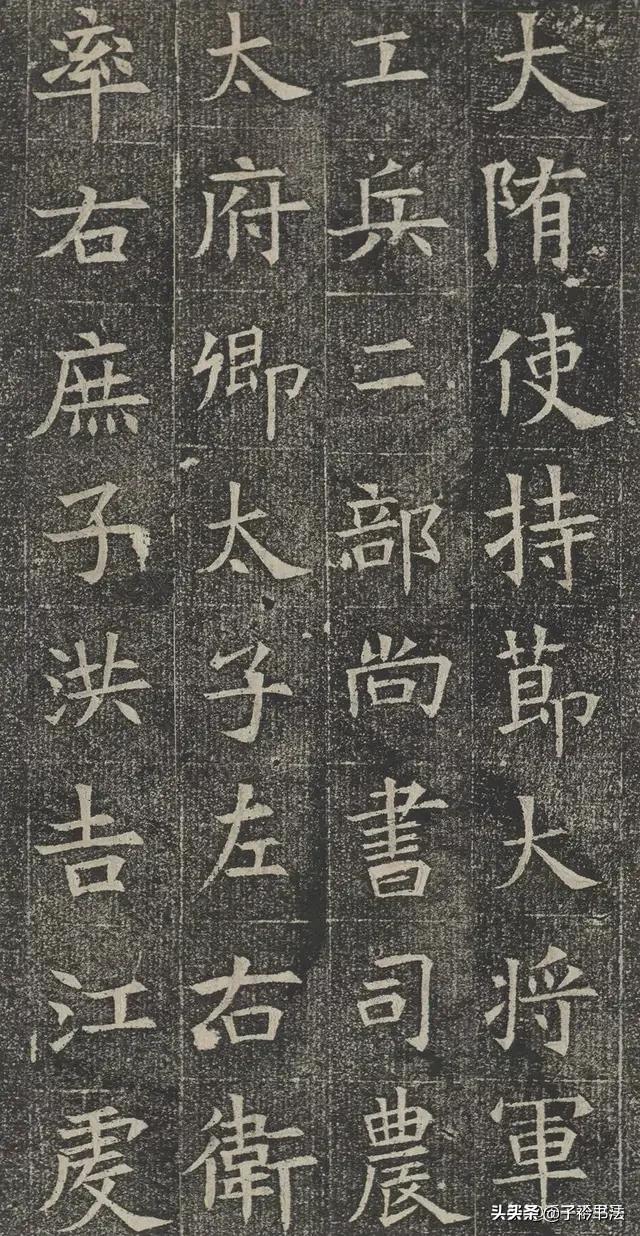 大隋使持節大将軍
工兵二部尚書司農
太府卿太子左右衛
率右庶子洪吉江虔
头条@子衿书法